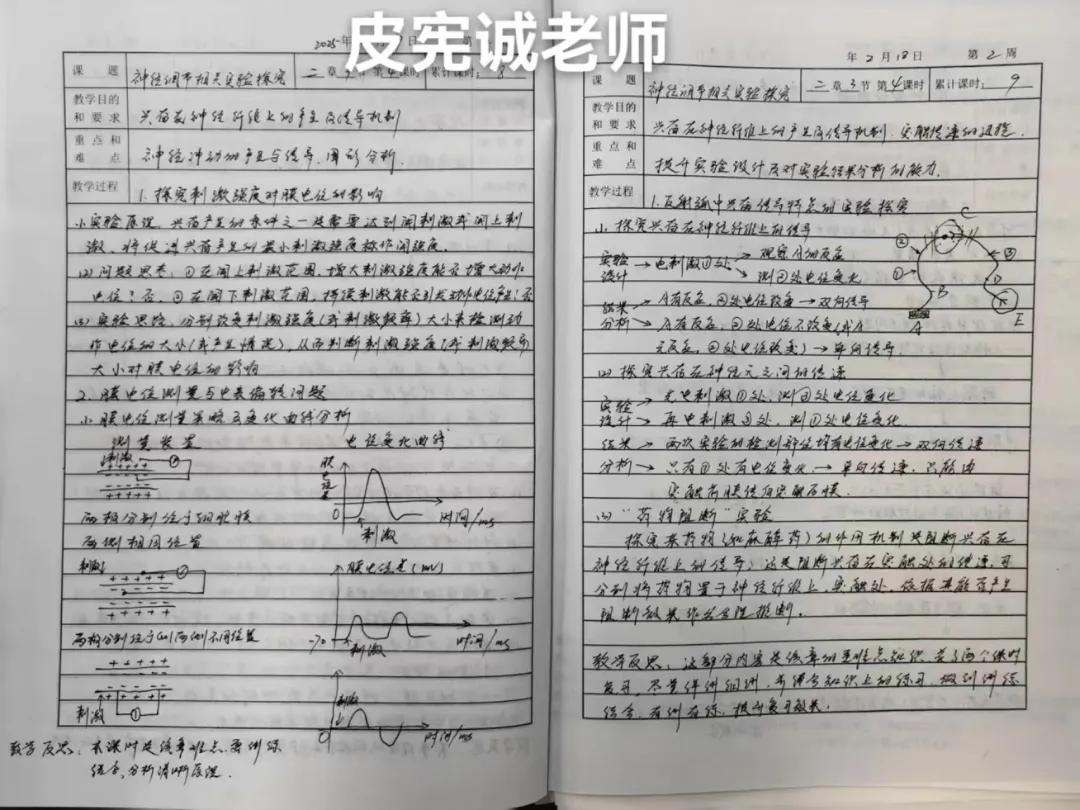 皮宪诚老师
2025年
课 题 神经调节相关实验探究 二章3节第4课时 累计课时: 8
教学目的和要求 兴奋在神经纤维上的产生及传导机制
重点和难点 神经冲动的产生与传导、图形分析.
教学过程 1.探究刺激强度对膜电位的影响
(1)实验原理,兴奋产生的条件之一是需要达到阈刺激或阈上刺
激,将促进兴奋产生的最小刺激强度称作阈强度.
(2)问题思考:①在阈上刺激范围,增大刺激强度能否增大动作
电位?否,②在阈下刺激范围,持续刺激能否引发动作电位产生?否
(3)实验思路,分别改变刺激强度(或刺激频率)大小来检测动
作电位的大小(或产生情况),从而判断刺激强度(或刺激频率)
大小对膜电位的影响
2.膜电位测量与电表偏转问题
(1)膜电位测量策略及变化曲线分析
测量装置 电位变化曲线
刺激
膜电位差
0 时间/ms
刺激
两极分别位于细胞膜
两侧相同位置
刺激
膜电位差(mV)
-70 时间/ms
刺激
两极分别位于 两侧不同位置
刺激
0 时间/ms
刺激
教学反思:本课时是该章难点,要例练
结合,分析清晰原理.
年2月18日 第2周
课 题 神经调节相关实验探究 二章3节第4课时 累计课时: 9
教学目的和要求 兴奋在神经纤维上的产生及传导机制.突触传递的过程.
重点和难点 提升实验设计及对实验结果分析的能力.
教学过程 1.反射弧中兴奋传导特点的实验探究
(1)探究兴奋在神经纤维上的传导
实验设计 → 电刺激①处 → 观察A的反应
→ 测②处电位变化
结果分析 → A有反应,②处电位改变→双向传导
→ A有反应,②处电位不改变(或A
无反应,②处电位改变)→单向传导.
A B C D E ① ② ③
(2)探究兴奋在神经元之间的传递
实验设计 → 先电刺激①处,测③处电位变化
→ 再电刺激③处,测①处电位变化.
结果分析 → 两次实验的检测部位均有电位变化→双向传递
→ 只有①处有电位变化→单向传递,只能由
突触前膜传向突触后膜.
(3)“药物阻断”实验
探究某药物(如麻醉药)的作用机制是阻断兴奋在
神经纤维上的传导,还是阻断兴奋在突触处的传递,可
分别将药物置于神经纤维上,突触处,依据其能否产生
阻断效果作出合理推断.
教学反思:这部分内容是该章的重难点知识,花了两个课时
复习,尽量详讲细讲,再结合知识上的练习,做到例练
结合,有例有练,提升复习效果.